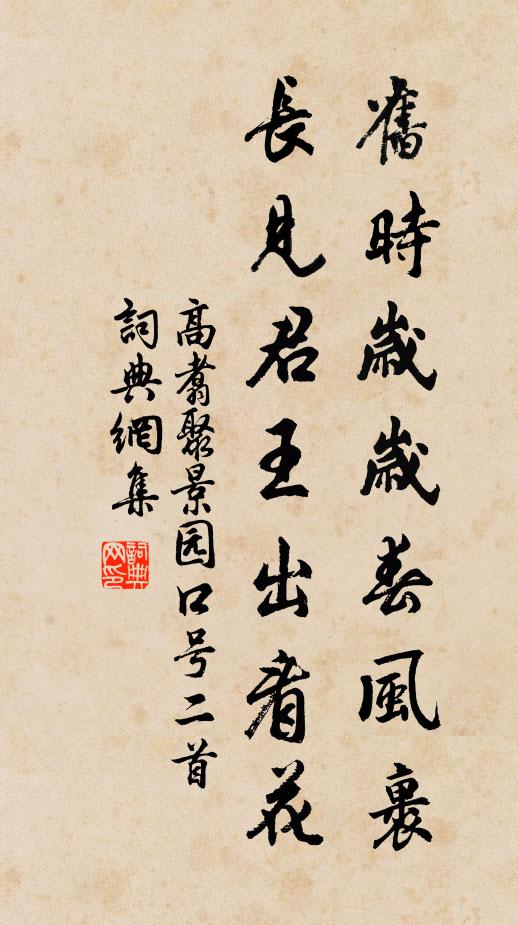 舊時歲歲春風裏
長見君王出看花
高翥聚景园口号二首
詞典網集
詞典
网印